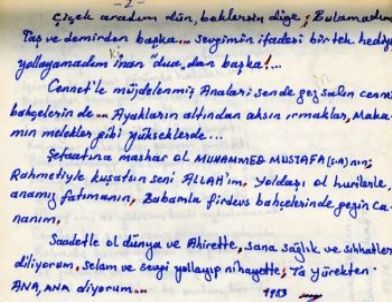 -2-
Çiçek aradım dün, beklersin diye; Bulamadım
Taş ve demirden başka... sevgimin ifadesi bir tek hediye
yollayamadım inan "dua,dan başka!...
Cennet'le müjdelenmiş Anaları sende gez salın cennet
bahçelerin de... Ayakların altından aksın ırmaklar, Maka-
mın melekler gibi yükseklerde...
Şefaatına mashar ol MUHAMMED MUSTAFA(S.A)nın,
Rahmetiyle kuşatsın seni ALLAH'ım, Yoldaşı ol hurilerle,
anamız fatımanın, Babamla firdevs bahçelerinde gezin Ca-
nanım,
Saadetle ol dünya ve Ahirette, sana sağlık ve sıhhatler
diliyorum, selam ve sevgi yollayıp nihayette, Ta yürekten
ANA, ANA diyorum... 1983